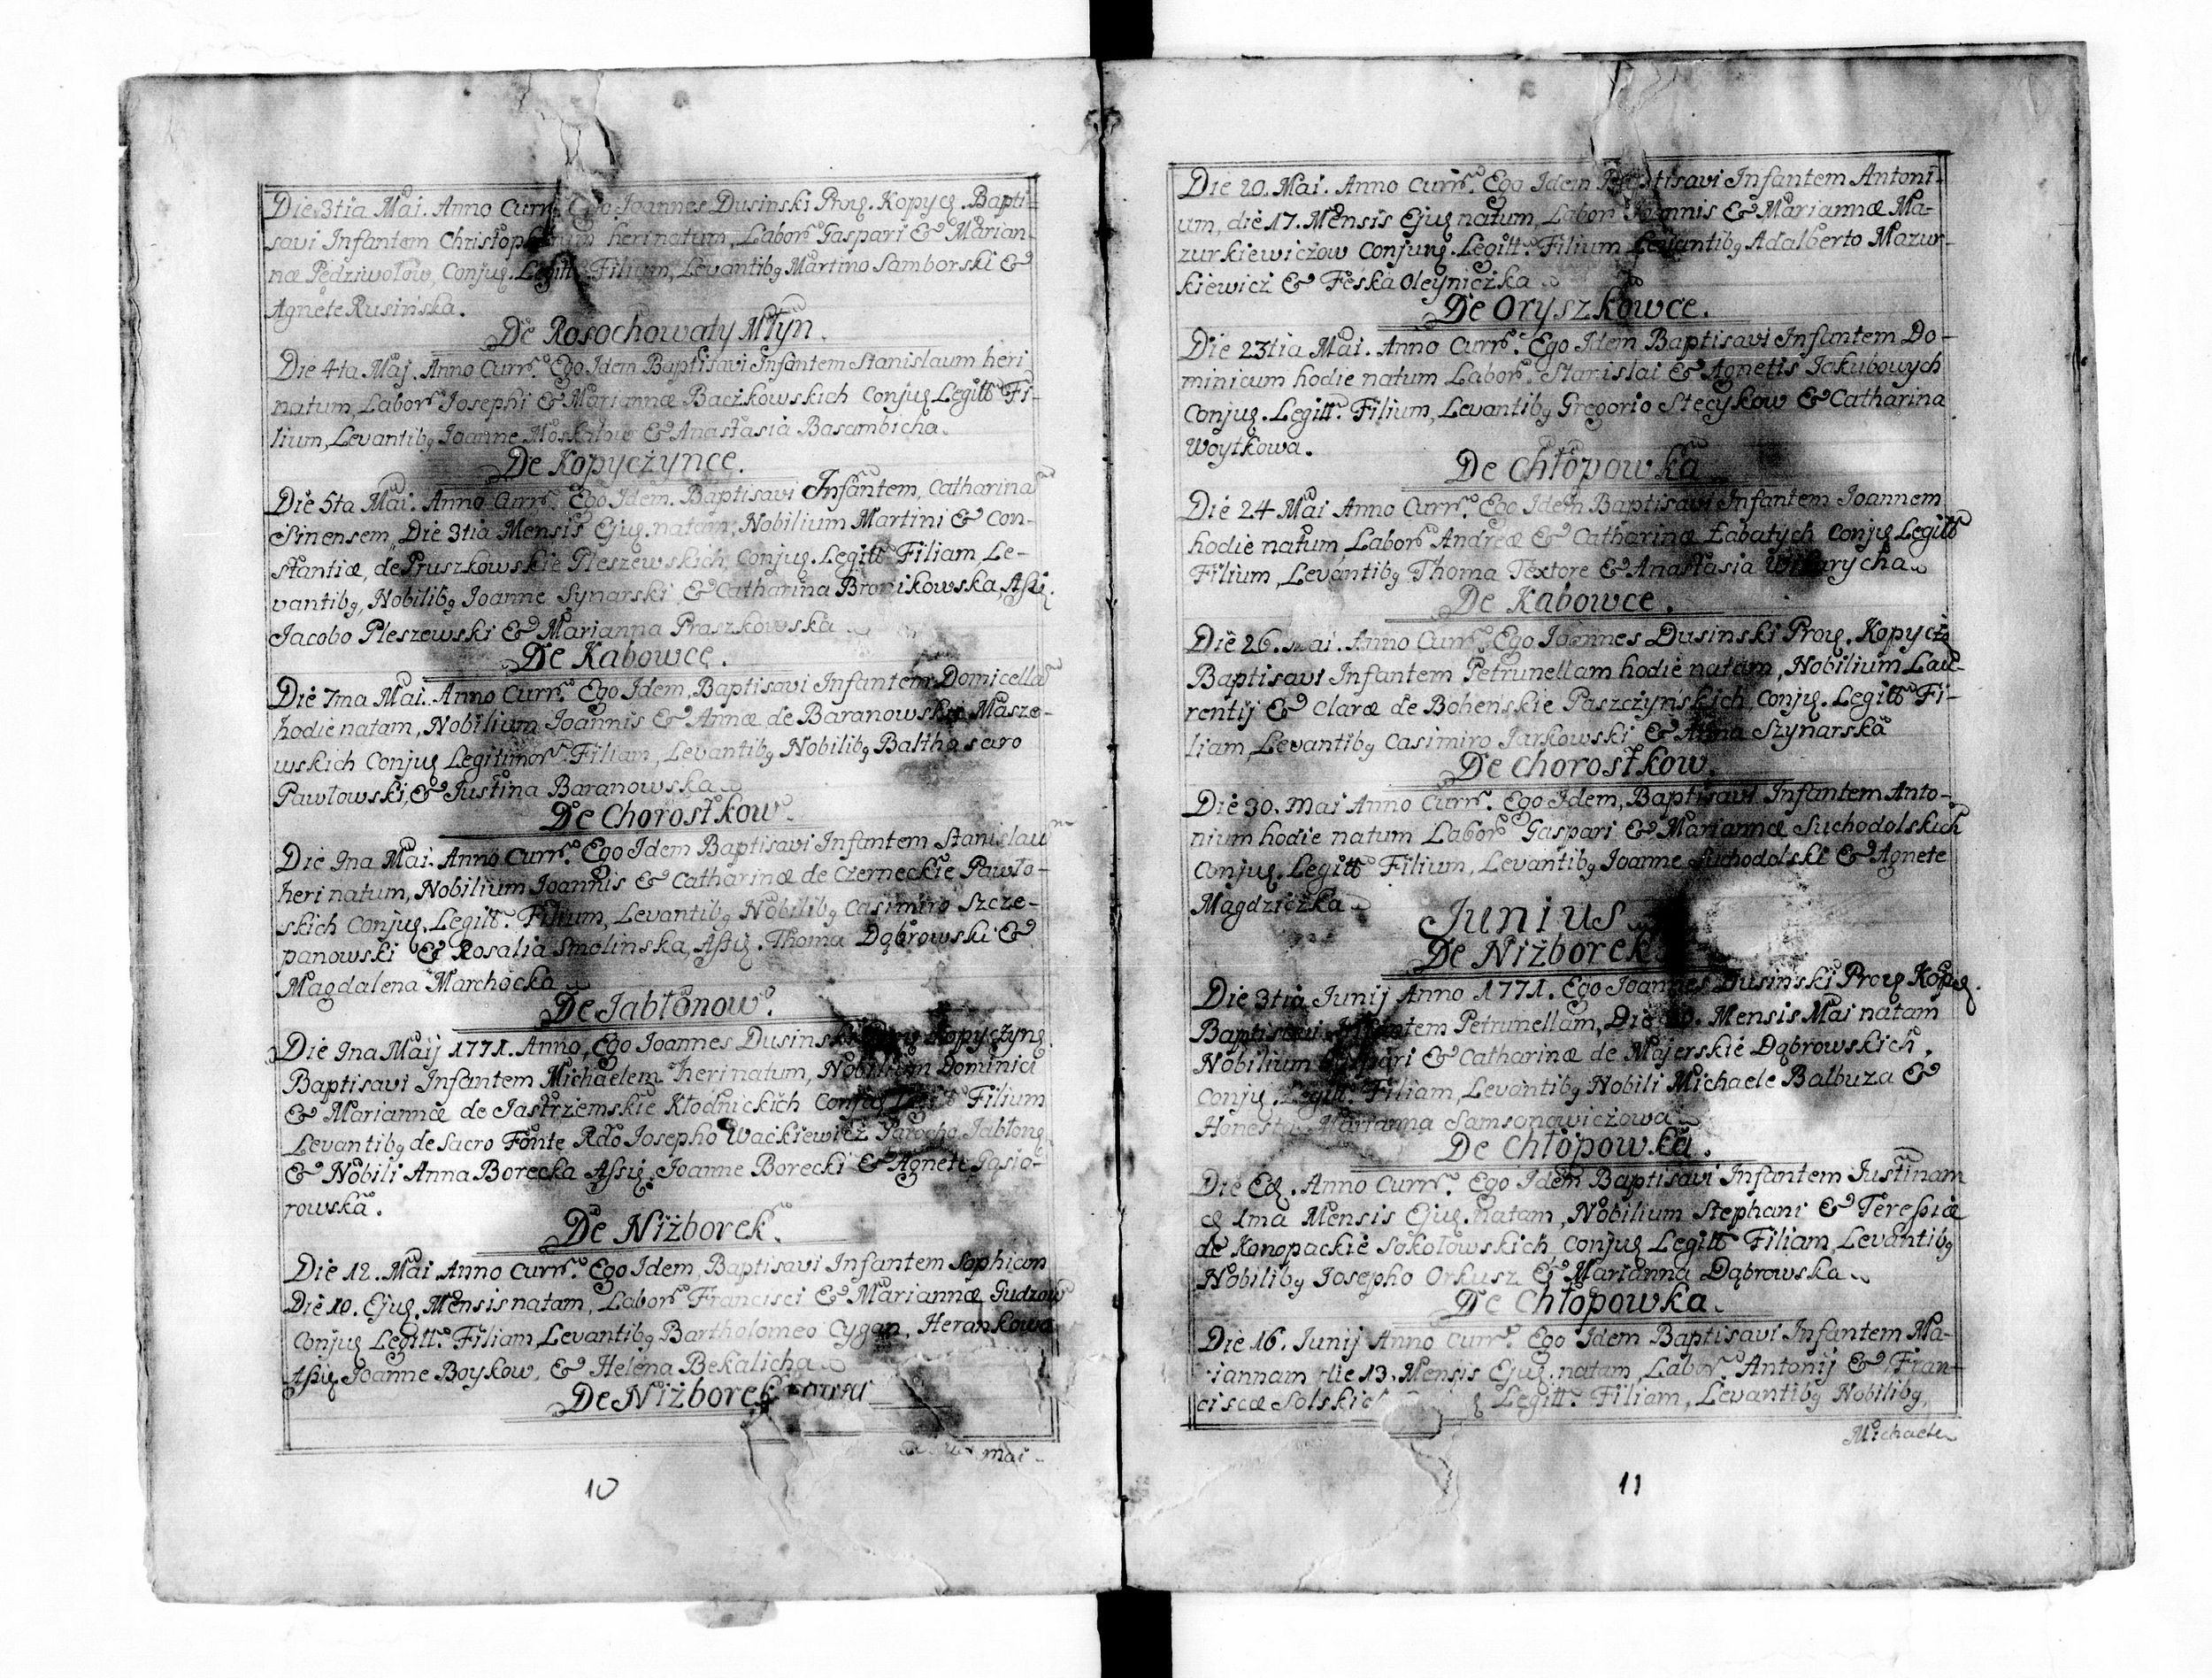 Die 3tia Mai. Anno Curr. Ego Joannes Dusinski Proq. Kopycz. Bapti-
savi Infantem Christophorum heri natum, Labor. Gaspari & Marian-
næ Pędziwołow, Conjug. Legitt. Filium, Levantibq Martino Samborski &
Agnete Rusińska.
De Rosochowaty Młyn.
Die 4ta Maj. Anno Curr. Ego Idem Baptisavi Infantem Stanislaum heri
natum, Labor. Josephi & Mariannæ Baczkowskich Conjug Legitt Fi-
lium, Levantibq Joanne Moskalow & Anastasia Basambicha.
De Kopyczynce.
Die 5ta Mai. Anno Curr. Ego Idem. Baptisavi Infantem, Catharinam
Sinensem, Die 3tia Mensis Ejuq. natam, Nobilium Martini & Con-
stantiæ, de Pruszkowskie Pleszewskich, Conjuq. Legitt. Filiam, Le-
vantibq, Nobilibq Joanne Synarski & Catharina Bronikowska, Assi.
Jacobo Pleszewski & Marianna Praszkowska
De Kabowce.
Die 7ma Mai. Anno Curr. Ego Idem, Baptisavi Infantem Domicellam
hodie natam, Nobilium Joannis & Annæ de Baranowskie Masze-
wskich Conjuq Legitimor. Filiam, Levantibq Nobilibq Balthasaro
Pawłowski, & Justina Baranowska
De Chorostkow.
Die 9na Mai. Anno Curr. Ego Idem Baptisavi Infantem Stanislaum
heri natum, Nobilium Joannis & Catharinæ de Czerneckie Pawło-
skich Conjuq. Legitt. Filium, Levantibq Nobilibq Casimiro Szcze-
panowski & Rosalia Smolinska, Assiq. Thoma Dąbrowski &
Magdalena Marchocka
De Jabłonow.
Die 9na Maij 1771. Anno, Ego Joannes Dusinski Kopyczynq.
Baptisavi Infantem Michaelem heri natum, Nobilium Dominici
& Mariannæ de Jastrzemskie Kłodnickich Conjuq Filium
Levantibq de Sacro Fonte Rdo Josepho Wackiewicz Parocho Jabłonq.
& Nobili Anna Borecka Assiq. Joanne Borecki & Agnete Gąsio-
rowska.
De Niżborek.
Die 12. Mai. Anno Curr. Ego Idem, Baptisavi Infantem Sophiam
Die 10. Ejuq. Mensis natam, Labor. Francisci & Mariannæ Gudzow
Conjuq Legitt. Filiam, Levantibq Bartholomeo Cygan, Herankowa
Assiq Joanne Boyskow, & Helena Bekalicha
De Niżborek
mai
10
Die 20. Mai. Anno Curr. Ego Idem Baptisavi Infantem Antoni-
um, die 17. Mensis Ejuq natum, Labor Joannis & Mariannæ Ma-
zurkiewiczow Conjung. Legitt. Filium Levantibq Adalberto Mazur-
kiewicz & Feska Oleyniczka
De Oryszkowce.
Die 23tia Mai. Anno Curr. Ego Idem Baptisavi Infantem Do-
minicum hodie natum Labor. Stanislai & Agnetis Jakubowych
Conjuq. Legitt. Filium, Levantibq Gregorio Stecykow & Catharina
Woytkowa.
De Chłopowka
Die 24 Mai Anno Curr. Ego Idem Baptisavi Infantem Joannem
hodie natum, Labor. Andreæ & Catharinæ Łabatych Conjuq Legitt
Filium, Levantibq Thoma Textore & Anastasia
De Kabowce.
Die 26. Mai. Anno Curr. Ego Joannes Dusinski Proq. Kopycz
Baptisavi Infantem Petrunellam hodie natam, Nobilium Lau-
rentij & Claræ de Boheńskie Paszczyńskich, Conjq. Legitt Fi-
liam, Levantibq Casimiro Jarkowski & Anna Szynarska
De Chorostkow.
Die 30. Mai Anno Curr. Ego Idem, Baptisavi Infantem Anto-
nium hodie natum Labor. Gaspari & Mariannæ Suchodolskich
Conjuq. Legitt Filium, Levantibq Joanne Suchodolski & Agnete
Magdziczka
Junius
De Niżborek
Die 3tia Junij Anno 1771. Ego Joannes Dusinski Proq Kopyq.
Baptisavi Infantem Petrunellam, Die Mensis Mai natam
Nobilium Gaspari & Catharinæ de Majerskie Dąbrowskich,
Conjq. Legitt. Filiam, Levantibq Nobili Michaele Balbuza &
Honesta Marianna Samsonowiczowa
De Chłopowka.
Die Eq. Anno Curr. Ego Idem Baptisavi Infantem Justinam
q 1ma Mensis Ejuq. natam, Nobilium Stephani & Teressiæ
de Konopackie Sokołowskich Conjuq Legitt Filiam, Levantibq
Nobilibq Josepho Orkusz & Marianna Dąbrowska
De Chłopowka.
Die 16. Junij Anno Curr. Ego Idem Baptisavi Infantem Ma-
riannam die 13. Mensis Ejuq. natam, Labor. Antonij & Fran-
ciscæ Solskich Legitt. Filiam, Levantibq Nobilibq,
Michaele
11